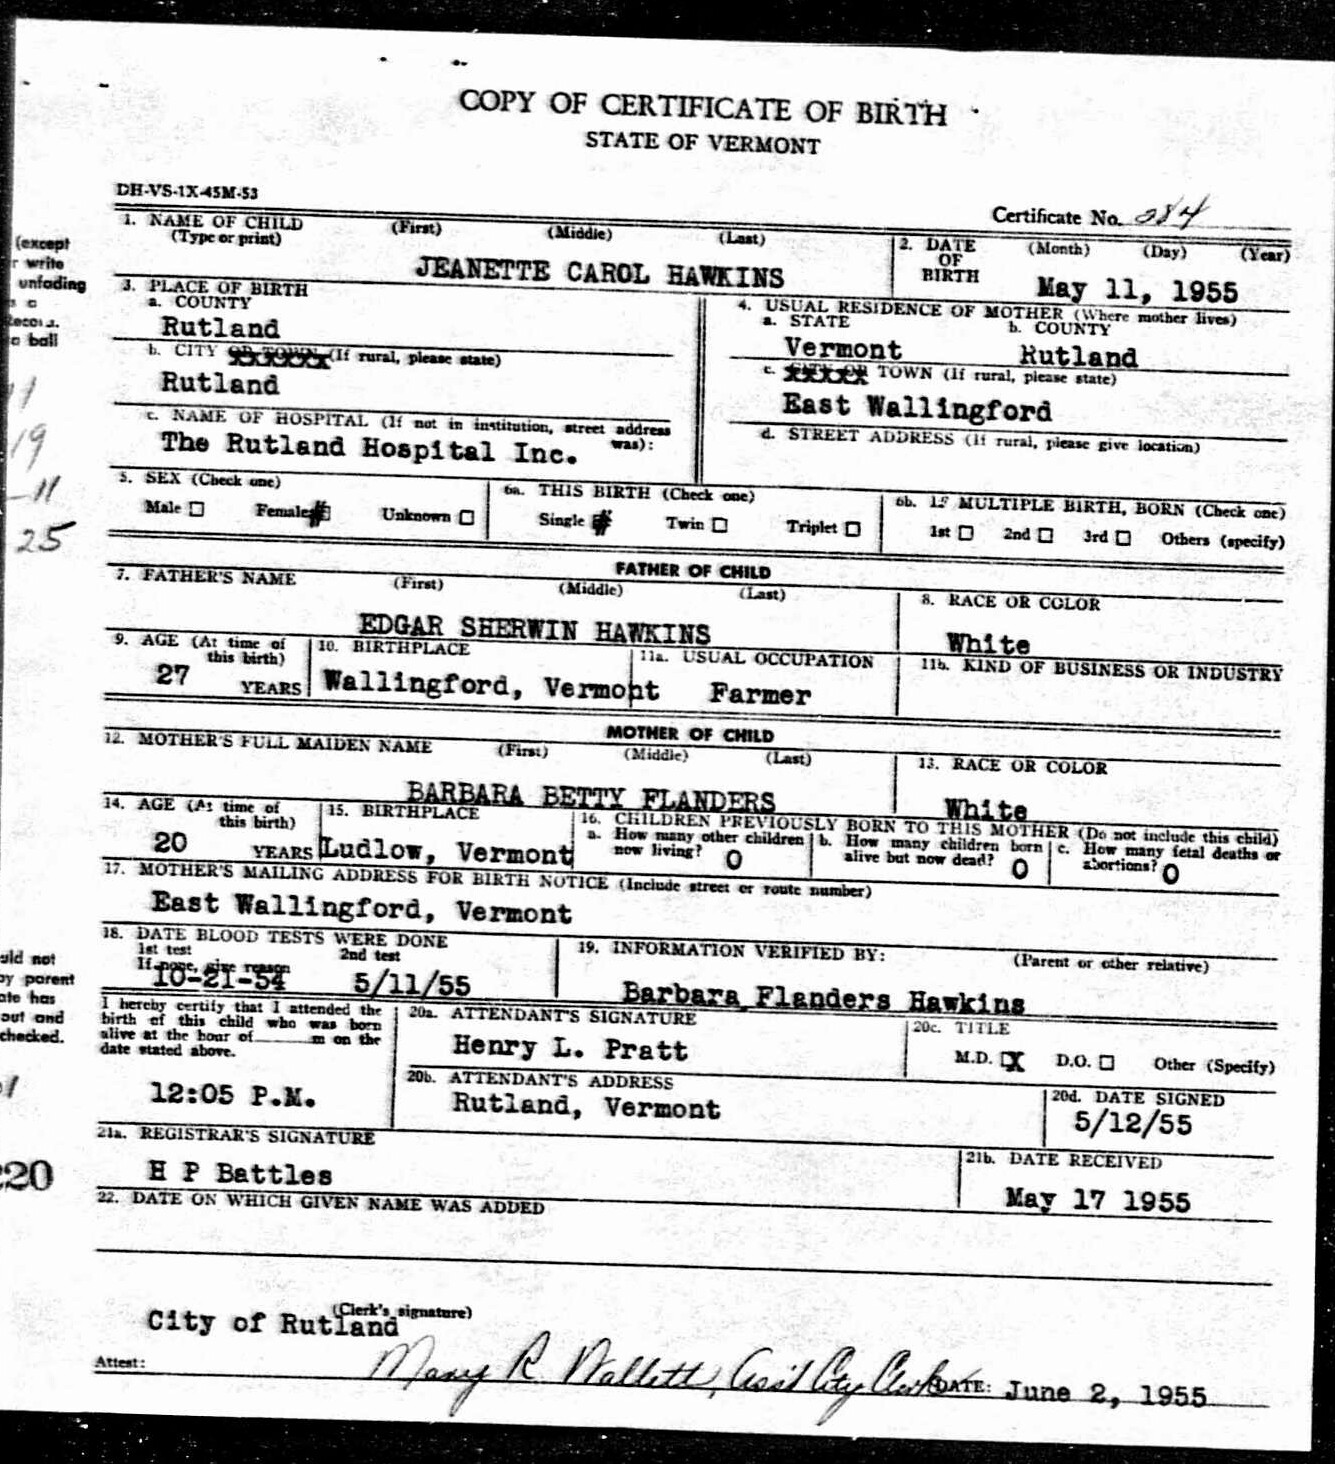 COPY OF CERTIFICATE OF BIRTH
STATE OF VERMONT
DH-VS-1X-45M-53
Certificate No. 284
1. NAME OF CHILD (First) (Middle) (Last)
(Type or print)
JEANETTE CAROL HAWKINS
2. DATE OF BIRTH (Month) (Day) (Year)
May 11, 1955
3. PLACE OF BIRTH
a. COUNTY
Rutland
b. CITY OR TOWN (If rural, please state)
Rutland
c. NAME OF HOSPITAL (If not in institution, street address was):
The Rutland Hospital Inc.
4. USUAL RESIDENCE OF MOTHER (Where mother lives)
a. STATE b. COUNTY
Vermont Rutland
c. CITY OR TOWN (If rural, please state)
East Wallingford
d. STREET ADDRESS (If rural, please give location)
5. SEX (Check one)
Male Female Unknown
6a. THIS BIRTH (Check one)
Single Twin Triplet
6b. IF MULTIPLE BIRTH, BORN (Check one)
1st 2nd 3rd Others (specify)
FATHER OF CHILD
7. FATHER'S NAME (First) (Middle) (Last)
EDGAR SHERWIN HAWKINS
8. RACE OR COLOR
White
9. AGE (At time of this birth)
27 YEARS
10. BIRTHPLACE
Wallingford, Vermont
11a. USUAL OCCUPATION
Farmer
11b. KIND OF BUSINESS OR INDUSTRY
MOTHER OF CHILD
12. MOTHER'S FULL MAIDEN NAME (First) (Middle) (Last)
BARBARA BETTY FLANDERS
13. RACE OR COLOR
White
14. AGE (At time of this birth)
20 YEARS
15. BIRTHPLACE
Ludlow, Vermont
16. CHILDREN PREVIOUSLY BORN TO THIS MOTHER (Do not include this child)
a. How many other children now living? 0
b. How many children born alive but now dead? 0
c. How many fetal deaths or abortions? 0
17. MOTHER'S MAILING ADDRESS FOR BIRTH NOTICE (Include street or route number)
East Wallingford, Vermont
18. DATE BLOOD TESTS WERE DONE
1st test 2nd test
If none, give reason
10-21-54 5/11/55
19. INFORMATION VERIFIED BY: (Parent or other relative)
Barbara Flanders Hawkins
I hereby certify that I attended the
birth of this child who was born
alive at the hour of m on the
date stated above.
12:05 P.M.
20a. ATTENDANT'S SIGNATURE
Henry L. Pratt
20c. TITLE
M.D. X D.O. Other (Specify)
20b. ATTENDANT'S ADDRESS
Rutland, Vermont
20d. DATE SIGNED
5/12/55
21a. REGISTRAR'S SIGNATURE
H P Battles
21b. DATE RECEIVED
May 17 1955
22. DATE ON WHICH GIVEN NAME WAS ADDED
(Clerk's signature)
City of Rutland
Attest: Mary R. Wallett, Ass't City Clerk DATE: June 2, 1955
(except
r write
unfading
a ball
11
19
-11
25
uld not
by parent
ate has
out and
checked.
220